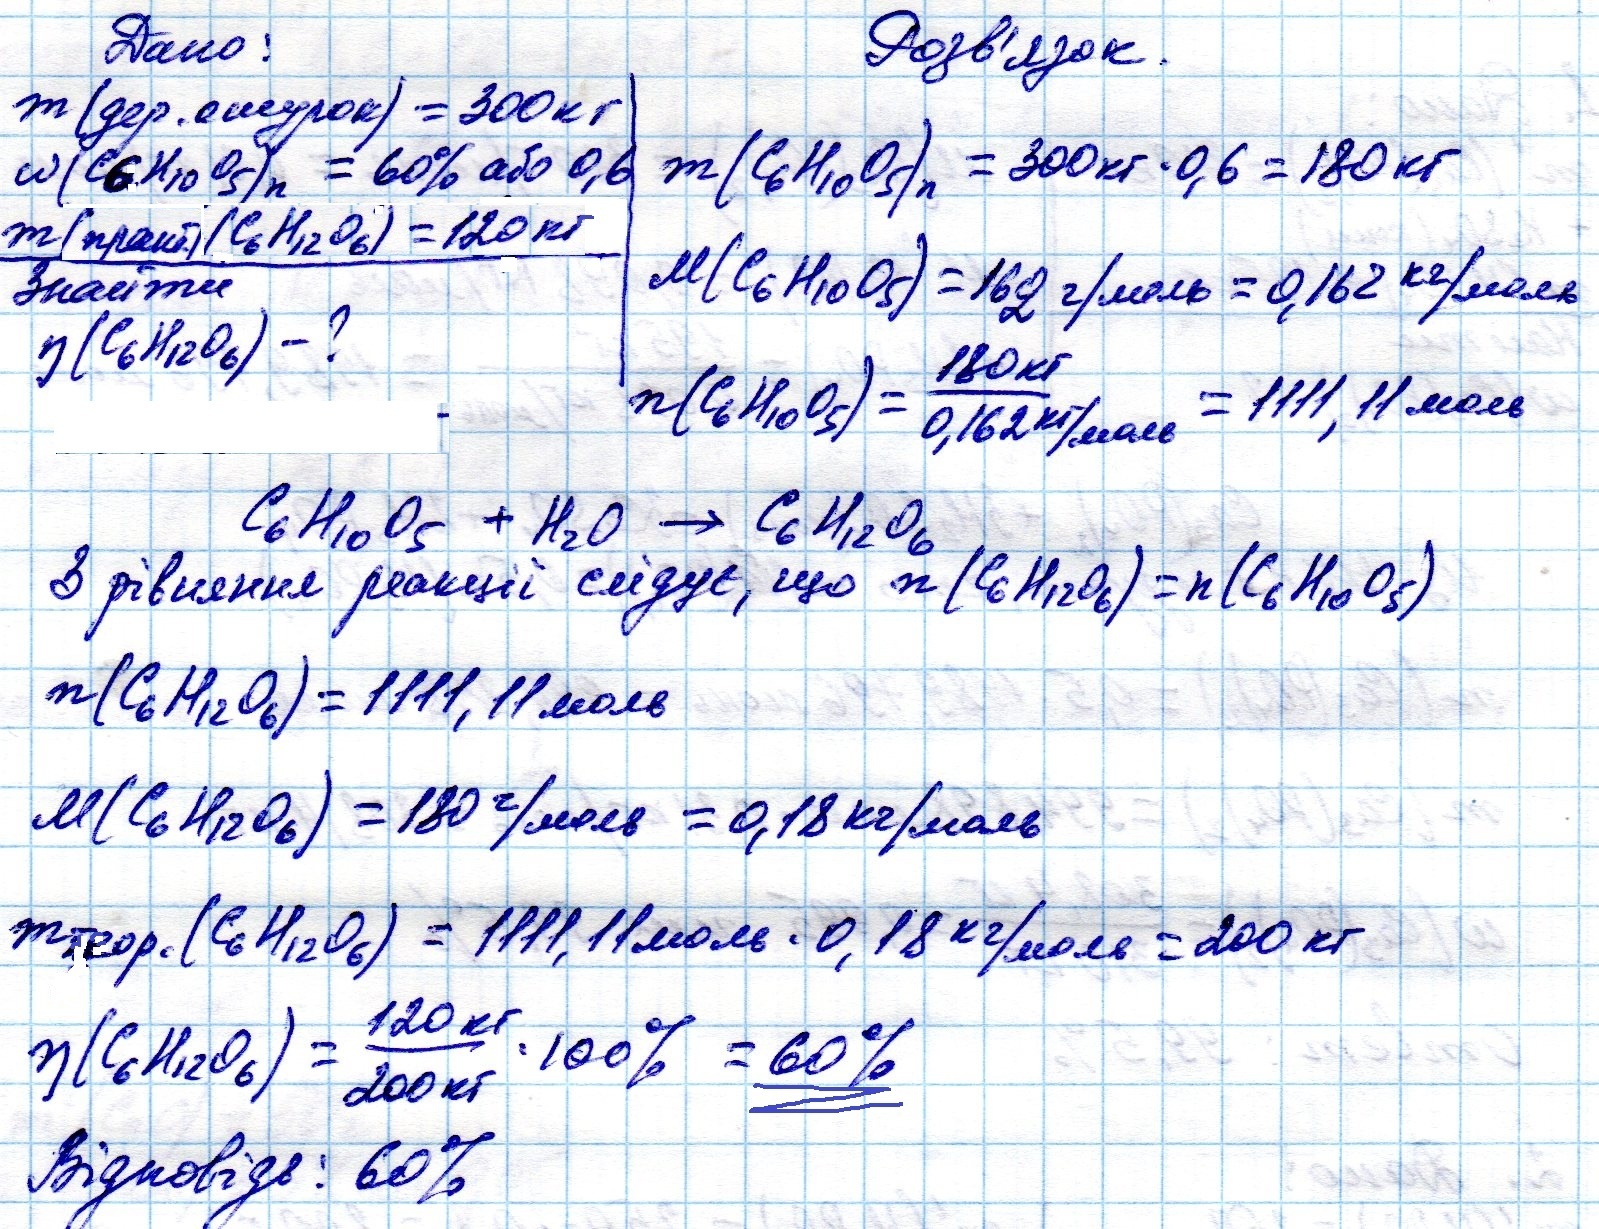 Дано:
m(дер. ошурок) = 300кг
ω(C6H10O5)n = 60% або 0,6
m(практ)(C6H12O6) = 120кг
Знайти
η(C6H12O6) - ?
Розв'язок.
m(C6H10O5)n = 300кг·0,6 = 180кг
M(C6H10O5) = 162 г/моль = 0,162 кг/моль
n(C6H10O5) = 180кг / 0,162кг/моль = 1111,11моль
C6H10O5 + H2O → C6H12O6
З рівняння реакції слідує, що n(C6H12O6) = n(C6H10O5)
n(C6H12O6) = 1111,11моль
M(C6H12O6) = 180г/моль = 0,18кг/моль
mтеор.(C6H12O6) = 1111,11моль·0,18кг/моль = 200кг
η(C6H12O6) = 120кг / 200кг ·100% = 60%
Відповідь: 60%